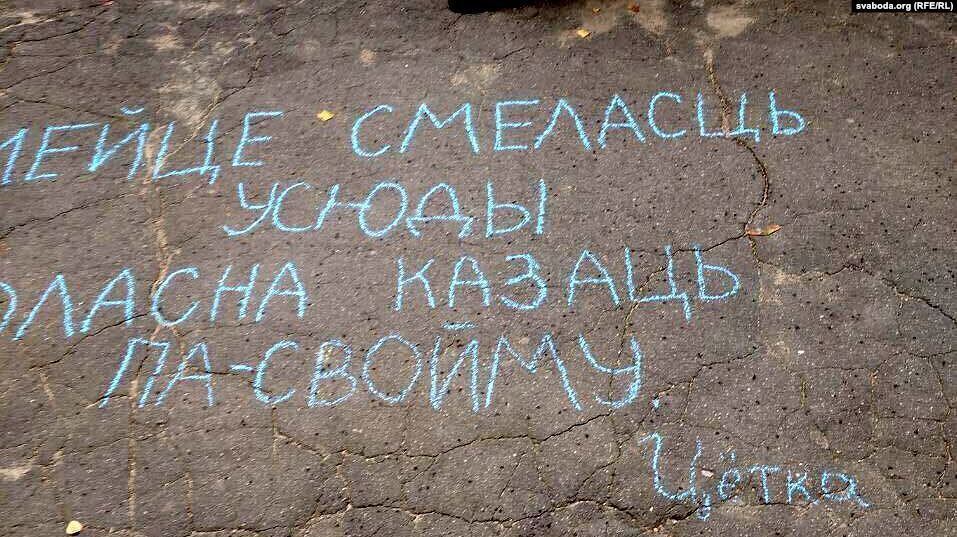 svaboda.org (RFE/RL)
МЕЙЦЕ СМЕЛАСЦЬ
УСЮДЫ
ОЛАСНА КАЗАЦЬ
ПА-СВОЙМУ.
Цётка